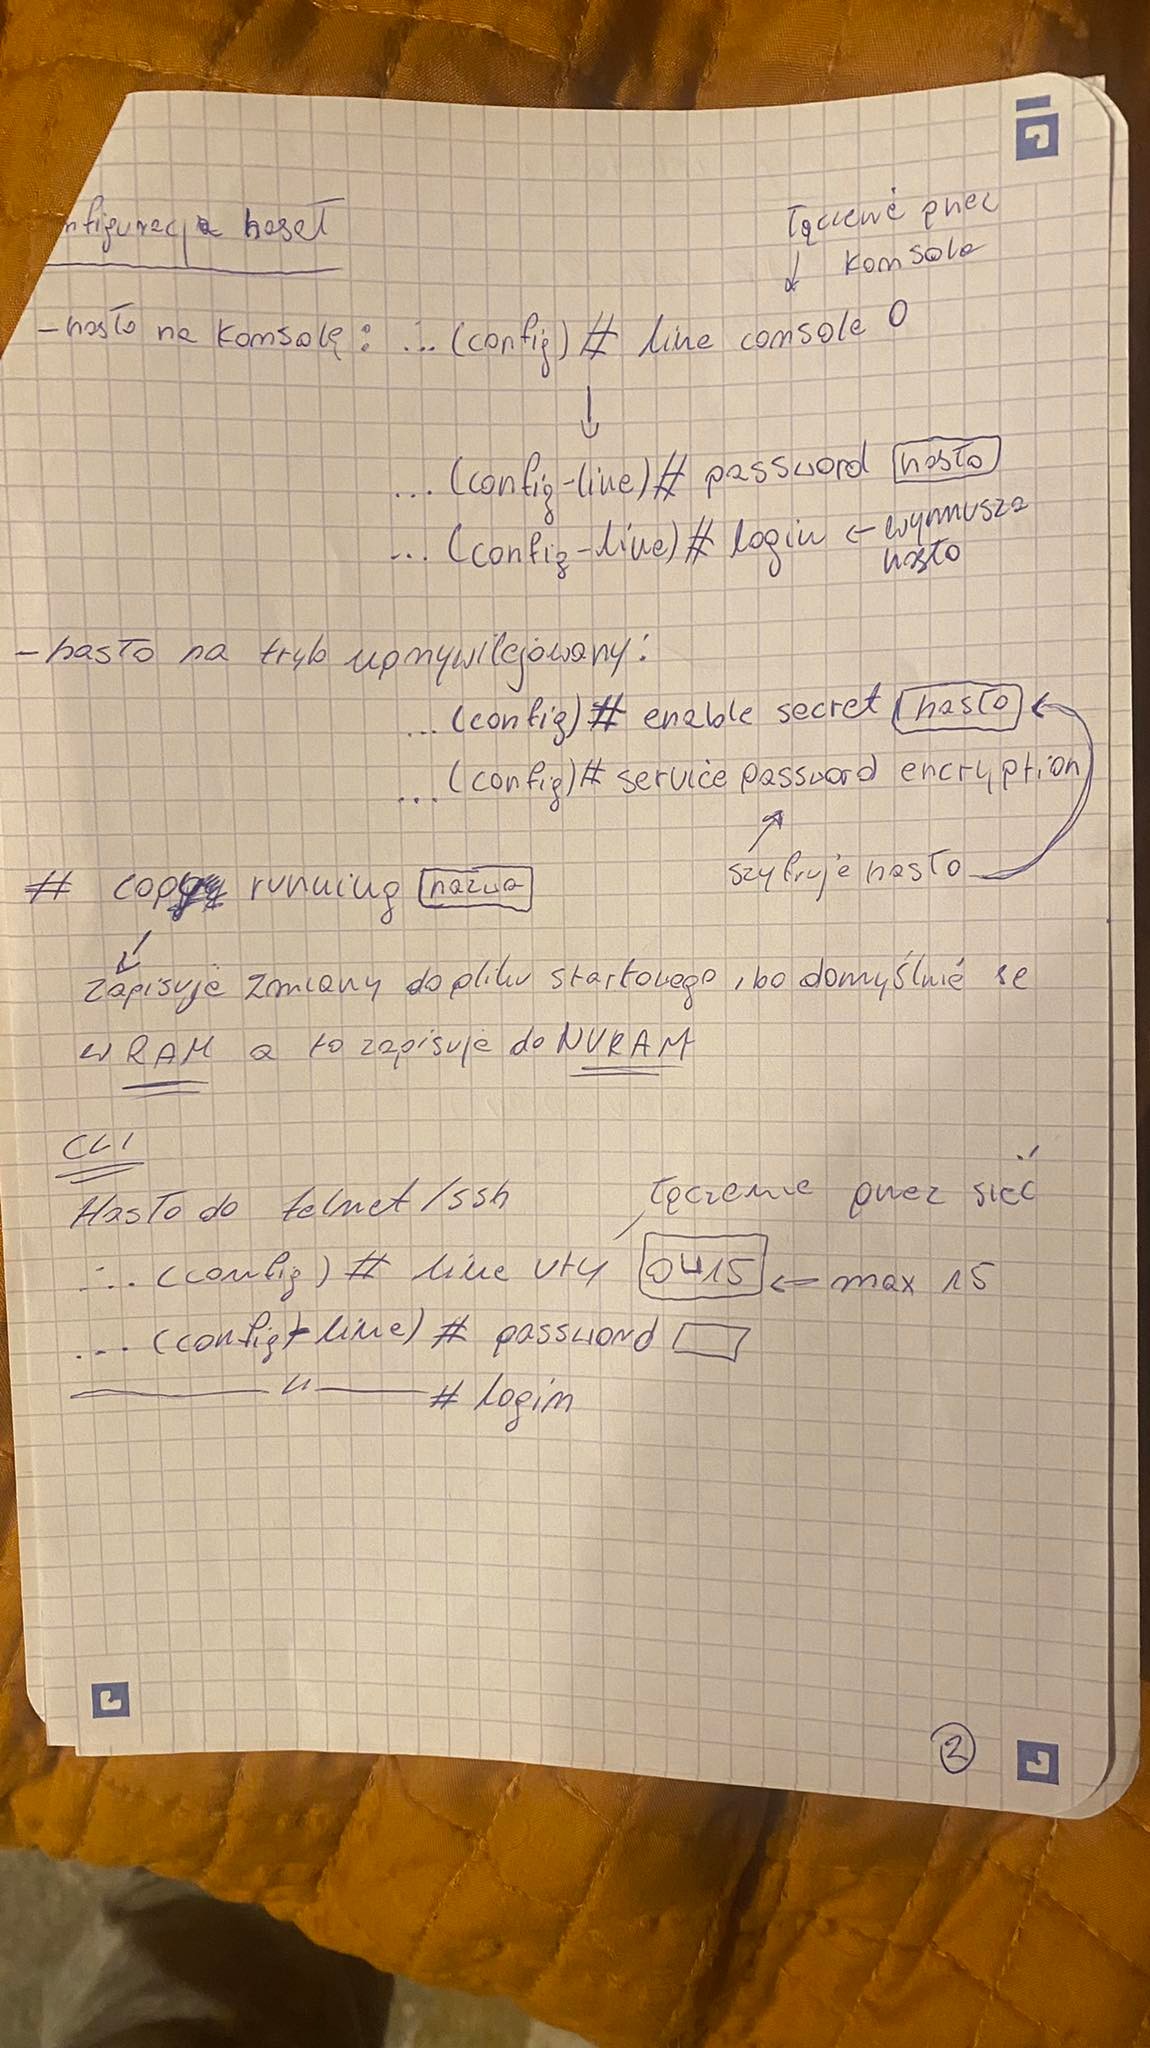 nfiguracja haseł
łączenie przez
↓ konsole
- hasło na konsolę: ...(config)# line console 0
↓
...(config-line)# password [hasło]
...(config-line)# login ← wymusza
hasło
- hasło na tryb uprzywilejowany:
...(config)# enable secret [hasło] ←
...(config)# service password encryption
szyfruje hasło
# copy running [nazwa]
zapisuje zmiany do pliku startowego, bo domyślnie są
w RAM a to zapisuje do NVRAM
CLI
Hasło do telnet/ssh
łączenie przez sieć
...(config)# line vty [0 15] ← max 15
...(config-line)# password [ ]
—— " —— # login
2